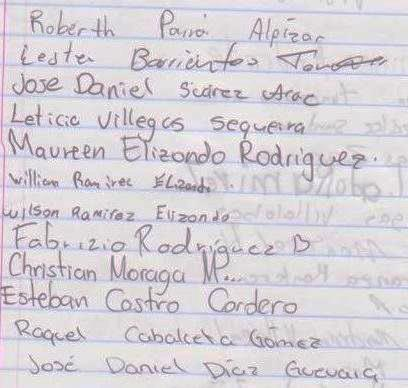 Roberth Parra Alpízar
Lester Barrientos
Jose Daniel Suarez Arac
Leticia Villegas Sequeira
Maureen Elizondo Rodriguez.
William Ramirez Elizondo.
Wilson Ramirez Elizondo
Fabrizio Rodriguez B
Christian Moraga M...
Esteban Castro Cordero
Raquel Cabalceta Gómez
José Daniel Díaz Guevara